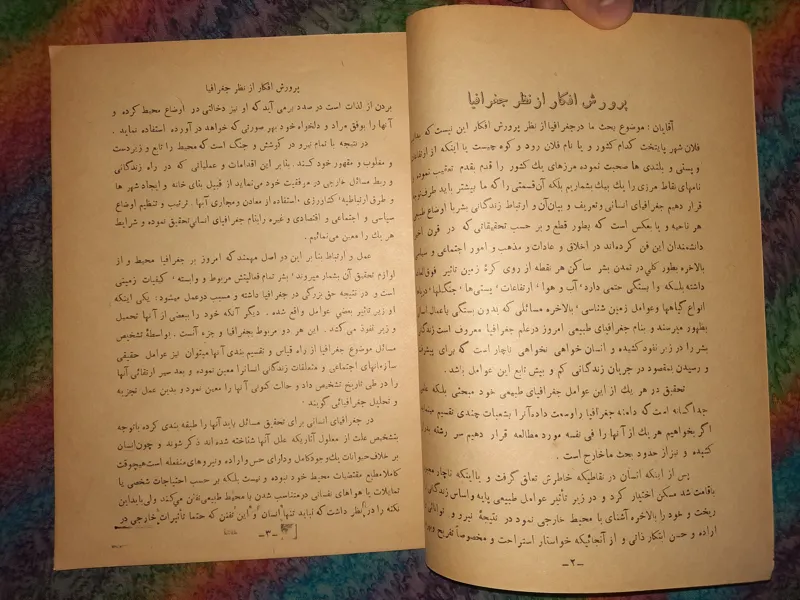 پرورش افکار از نظر جغرافیا
آقایان : موضوع بحث ما درجغرافیا از نظر پرورش افکار این نیست که
فلان شهر پایتخت کدام کشور و یا نام فلان رود و کوه چیست یا اینکه از
و پستی و بلندی ها صحبت نموده مرزهای یك کشور را قدم بقدم تعقیب نموده
نامهای نقاط مرزی را یك بیك بشماریم بلکه آن قسمتی را که ما بیشتر باید طرف
قرار دهیم جغرافیای انسانی و تعریف و بیان آن و ارتباط زندگانی بشر با اوضاع
هر ناحیه و یا بعکس است که بطور قطع و بر حسب تحقیقاتی که در قرن
دانشمندان این فن کرده‌اند در اخلاق و عادات و مذهب و امور اجتماعی و
بالاخره بطور کلی در تمدن بشر ساکن هر نقطه از روی کرهٔ زمین تاثیر فوق
داشته بلکه وابستگی حتمی دارد٬ آب و هوا٬ ارتفاعات٬ پستی‌ها٬ جنگلها٬
انواع گیاهها وعوامل زمین شناسی٬ بالاخره مسائلی که بدون بستگی باعمال
بظهور میرسند و بنام جغرافیای طبیعی امروز درعلم جغرافیا معروف است
بشر را در زیر نفوذ کشیده و انسان خواهی نخواهی ناچار است که برای
و رسیدن بمقصود در جریان زندگانی کم و بیش تابع این عوامل باشد .
تحقیق در هر یك از این عوامل جغرافیای طبیعی خود مبحثی بلکه
جداگانه است که دامنه جغرافیا را وسعت داده آنرا بشعبات چندی تقسیم
اگر بخواهیم هر یك از آنها را فی نفسه مورد مطالعه قرار دهیم سر رشته
کشیده و نیز از حدود بحث ما خارج است .
پس از اینکه انسان در نقاطیکه خاطرش تعلق گرفت و یا اینکه ناچار
باقامت شد مسکن اختیار کرد و در زیر تأثیر عوامل طبیعی پایه و اساس زندگانی
ریخت و خود را بالاخره آشنای با محیط خارجی نمود در نتیجهٔ نیرو و
اراده و حسن ابتکار ذاتی و از آنجائیکه خواستار استراحت و مخصوصاً تفریح
-۲-
پرورش افکار از نظر جغرافیا
بردن از لذات است در صدد برمی آید که او نیز دخالتی در اوضاع محیط کرده و
آنها را بوفق مراد و دلخواه خود بهر صورتی که خواهد در آورده استفاده نماید .
در نتیجه با تمام نیرو در کوشش و جنگ است که محیط را تابع و زیردست
و مغلوب و مقهور خود کند. بنابر این اقدامات و عملیاتی که در راه زندگانی
و ربط مسائل خارجی در مرفقیت خود می‌نماید از قبیل بنای خانه و ایجاد شهر ها
و طرق ارتباطیه٬ کشاورزی٬ استفاده از معادن و مجاری آبها٬ ترتیب و تنظیم اوضاع
سیاسی و اجتماعی و اقتصادی و غیره رابنام جغرافیای انسانی تحقیق نموده و شرایط
هر یك را معین می‌نمائیم .
عمل و ارتباط بنابر این دو اصل مهمتند که امروز بر جغرافیا محیط و از
لوازم تحقیق آن بشمار میروند٬ بشر تمام فعالیتش مربوط و وابسته٬ کیفیات زمینی
است و در نتیجه حق بزرگی در جغرافیا داشته و مسبب دوعمل میشود: یکی اینکه
او زیر تاثیر بعضی عوامل واقع شده . دیگر آنکه خود را ببعضی از آنها تحمیل
و زیر نفوذ می کشد . این هر دو مربوط بجغرافیا و جزء آنست . بواسطهٔ تشخیص
مسائل موضوع جغرافیا از راه قیاس و تقسیم بندی آنها میتوان نیز عوامل حقیقی
سازمانهای اجتماعی و متعلقات زندگانی انسانرا معین نموده و بعد سیر ارتقائی آنها
را در طی تاریخ تشخیص داد و حالت کنونی آنها را معین نمود و بدین عمل تجزیه
و تحلیل جغرافیائی گویند٬
در جغرافیای انسانی برای تحقیق مسائل باید آنها را طبقه بندی کرده باتوجه
بتشخیص علت از معلول آثاریکه علل آنها شناخته شده‌اند ذکر شوند و چون انسان
بر خلاف حیوانات یك وجود کامل و دارای حس و اراده و نیروهای منفعله است هیچوقت
کاملا مطیع مقتضیات محیط خود نبوده و نیست بلکه بر حسب احتیاجات شخصی یا
تمایلات یا هواهای نفسانی درمتناسب شدن با محیط طبیعی تفنن می‌کند ولی باید این
نکته را در نظر داشت که نباید تنها انسان و این تفنن که حتما تأثیرات خارجی در
-۳-